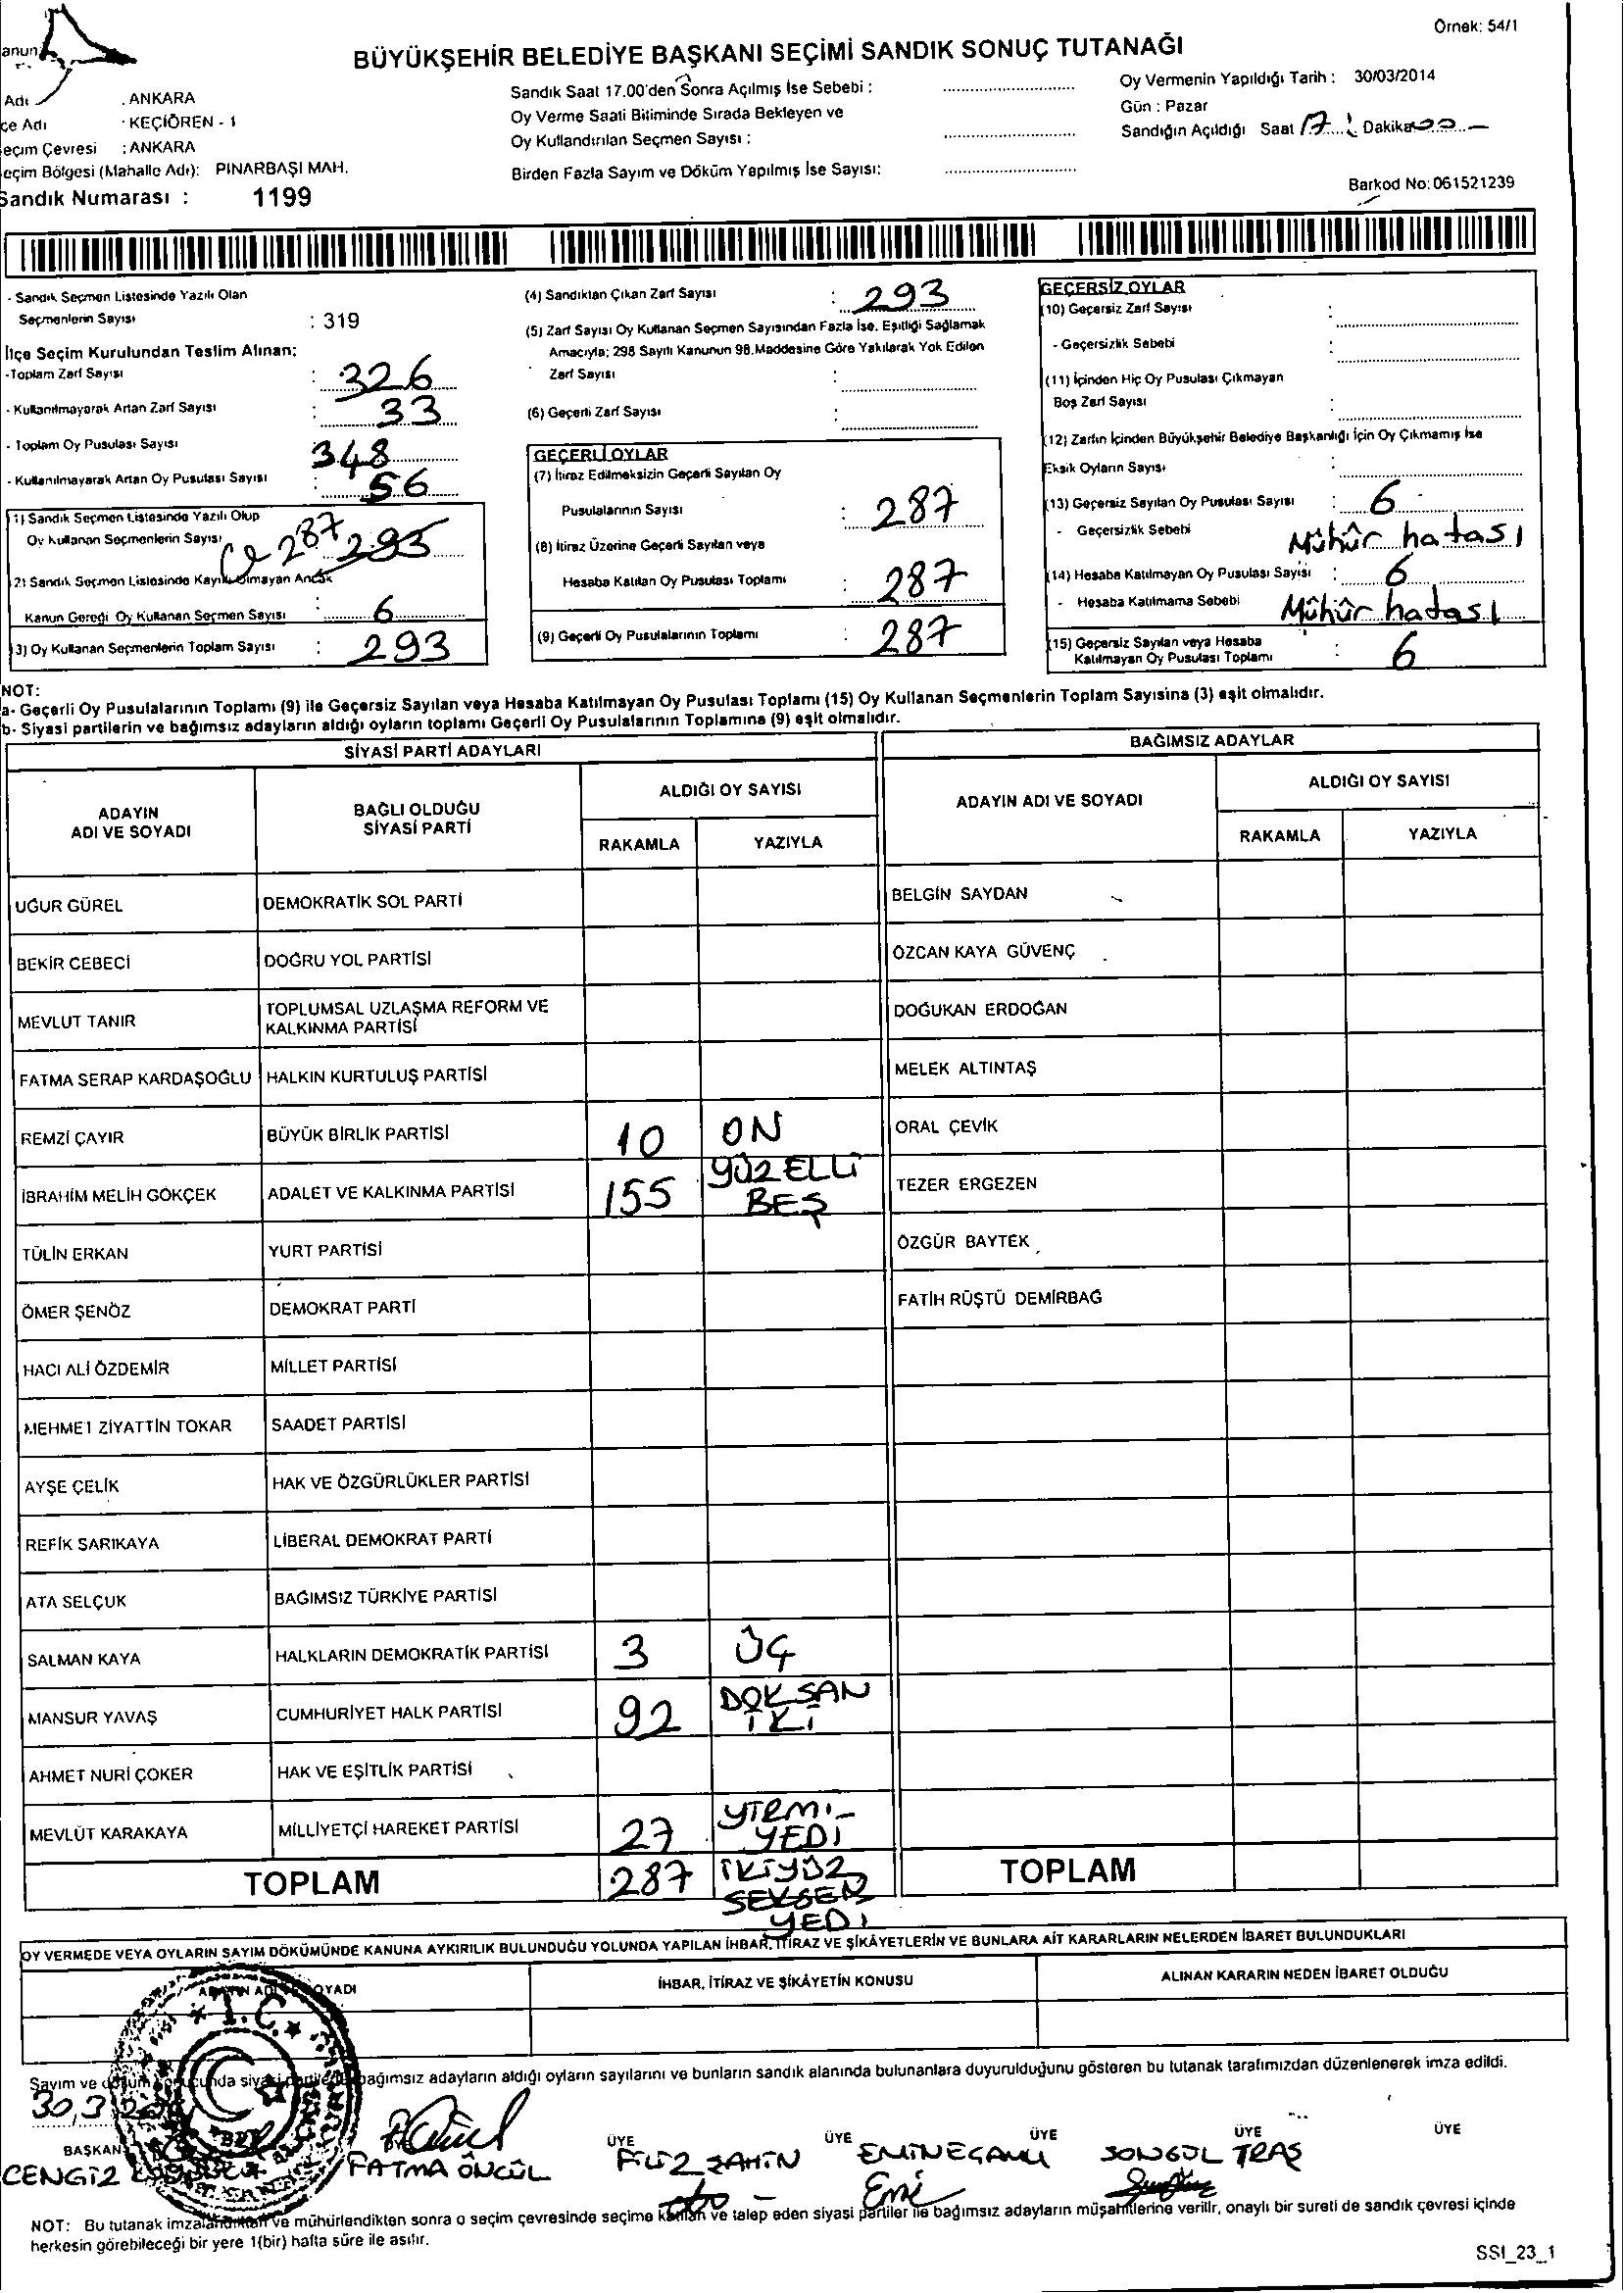 Örnek: 54/1
BÜYÜKŞEHİR BELEDİYE BAŞKANI SEÇİMİ SANDIK SONUÇ TUTANAĞI
Adı : ANKARA
çe Adı : KEÇİÖREN - 1
eçim Çevresi : ANKARA
eçim Bölgesi (Mahalle Adı): PINARBAŞI MAH.
Sandık Numarası : 1199
Sandık Saat 17.00'den Sonra Açılmış İse Sebebi :
Oy Verme Saati Bitiminde Sırada Bekleyen ve
Oy Kullandırılan Seçmen Sayısı :
Birden Fazla Sayım ve Döküm Yapılmış İse Sayısı:
Oy Vermenin Yapıldığı Tarih : 30/03/2014
Gün : Pazar
Sandığın Açıldığı Saat 17 : Dakika 00 -
Barkod No: 061521239
- Sandık Seçmen Listesinde Yazılı Olan
Seçmenlerin Sayısı : 319
İlçe Seçim Kurulundan Teslim Alınan:
-Toplam Zarf Sayısı : 326
- Kullanılmayarak Artan Zarf Sayısı : 33
- Toplam Oy Pusulası Sayısı : 348
- Kullanılmayarak Artan Oy Pusulası Sayısı : 56
1) Sandık Seçmen Listesinde Yazılı Olup
Oy Kullanan Seçmenlerin Sayısı 287 293
2) Sandık Seçmen Listesinde Kayıtlı Olmayan Ancak
Kanun Gereği Oy Kullanan Seçmen Sayısı : 6
3) Oy Kullanan Seçmenlerin Toplam Sayısı : 293
(4) Sandıktan Çıkan Zarf Sayısı : 293
(5) Zarf Sayısı Oy Kullanan Seçmen Sayısından Fazla İse, Eşitliği Sağlamak
Amacıyla; 298 Sayılı Kanunun 98.Maddesine Göre Yakılarak Yok Edilen
Zarf Sayısı :
(6) Geçerli Zarf Sayısı :
GEÇERLİ OYLAR
(7) İtiraz Edilmeksizin Geçerli Sayılan Oy
Pusulalarının Sayısı : 287
(8) İtiraz Üzerine Geçerli Sayılan veya
Hesaba Katılan Oy Pusulası Toplamı : 287
(9) Geçerli Oy Pusulalarının Toplamı : 287
GEÇERSİZ OYLAR
(10) Geçersiz Zarf Sayısı :
- Geçersizlik Sebebi :
(11) İçinden Hiç Oy Pusulası Çıkmayan
Boş Zarf Sayısı :
(12) Zarfın İçinden Büyükşehir Belediye Başkanlığı İçin Oy Çıkmamış İse
Eksik Oyların Sayısı :
(13) Geçersiz Sayılan Oy Pusulası Sayısı : 6
- Geçersizlik Sebebi Mühür hatası
(14) Hesaba Katılmayan Oy Pusulası Sayısı : 6
- Hesaba Katılmama Sebebi Mühür hatası
(15) Geçersiz Sayılan veya Hesaba
Katılmayan Oy Pusulası Toplamı : 6
NOT:
a- Geçerli Oy Pusulalarının Toplamı (9) ile Geçersiz Sayılan veya Hesaba Katılmayan Oy Pusulası Toplamı (15) Oy Kullanan Seçmenlerin Toplam Sayısına (3) eşit olmalıdır.
b- Siyasi partilerin ve bağımsız adayların aldığı oyların toplamı Geçerli Oy Pusulalarının Toplamına (9) eşit olmalıdır.
SİYASİ PARTİ ADAYLARI
BAĞIMSIZ ADAYLAR
ADAYIN ADI VE SOYADI
BAĞLI OLDUĞU SİYASİ PARTİ
ALDIĞI OY SAYISI
RAKAMLA YAZIYLA
ADAYIN ADI VE SOYADI
ALDIĞI OY SAYISI
RAKAMLA YAZIYLA
UĞUR GÜREL DEMOKRATİK SOL PARTİ BELGİN SAYDAN
BEKİR CEBECİ DOĞRU YOL PARTİSİ ÖZCAN KAYA GÜVENÇ
MEVLUT TANIR TOPLUMSAL UZLAŞMA REFORM VE KALKINMA PARTİSİ DOĞUKAN ERDOĞAN
FATMA SERAP KARDAŞOĞLU HALKIN KURTULUŞ PARTİSİ MELEK ALTINTAŞ
REMZİ ÇAYIR BÜYÜK BİRLİK PARTİSİ 10 ON ORAL ÇEVİK
İBRAHİM MELİH GÖKÇEK ADALET VE KALKINMA PARTİSİ 155 YÜZELLİ BEŞ TEZER ERGEZEN
TÜLİN ERKAN YURT PARTİSİ ÖZGÜR BAYTEK
ÖMER ŞENÖZ DEMOKRAT PARTİ FATİH RÜŞTÜ DEMİRBAĞ
HACI ALİ ÖZDEMİR MİLLET PARTİSİ
MEHMET ZİYATTİN TOKAR SAADET PARTİSİ
AYŞE ÇELİK HAK VE ÖZGÜRLÜKLER PARTİSİ
REFİK SARIKAYA LİBERAL DEMOKRAT PARTİ
ATA SELÇUK BAĞIMSIZ TÜRKİYE PARTİSİ
SALMAN KAYA HALKLARIN DEMOKRATİK PARTİSİ 3 ÜÇ
MANSUR YAVAŞ CUMHURİYET HALK PARTİSİ 92 DOKSAN İKİ
AHMET NURİ ÇOKER HAK VE EŞİTLİK PARTİSİ
MEVLÜT KARAKAYA MİLLİYETÇİ HAREKET PARTİSİ 27 YİRMİ-YEDİ
TOPLAM 287 İKİYÜZ SEKSEN YEDİ TOPLAM
OY VERMEDE VEYA OYLARIN SAYIM DÖKÜMÜNDE KANUNA AYKIRILIK BULUNDUĞU YOLUNDA YAPILAN İHBAR, İTİRAZ VE ŞİKÂYETLERİN VE BUNLARA AİT KARARLARIN NELERDEN İBARET BULUNDUKLARI
İHBAR, İTİRAZ VE ŞİKÂYETİN KONUSU
ALINAN KARARIN NEDEN İBARET OLDUĞU
T.C.
Sayım ve bağımsız adayların aldığı oyların sayılarını ve bunların sandık alanında bulunanlara duyurulduğunu gösteren bu tutanak tarafımızdan düzenlenerek imza edildi.
30,3
BAŞKAN ÜYE ÜYE ÜYE ÜYE ÜYE
CENGİZ FATMA ÖNCÜL FİLİZ ŞAHİN EMİNE SONGÜL TRAŞ
NOT: Bu tutanak imzalandıktan ve mühürlendikten sonra o seçim çevresinde seçime katılan ve talep eden siyasi partiler ile bağımsız adayların müşahitlerine verilir, onaylı bir sureti de sandık çevresi içinde
herkesin görebileceği bir yere 1(bir) hafta süre ile asılır.
SSI_23_1